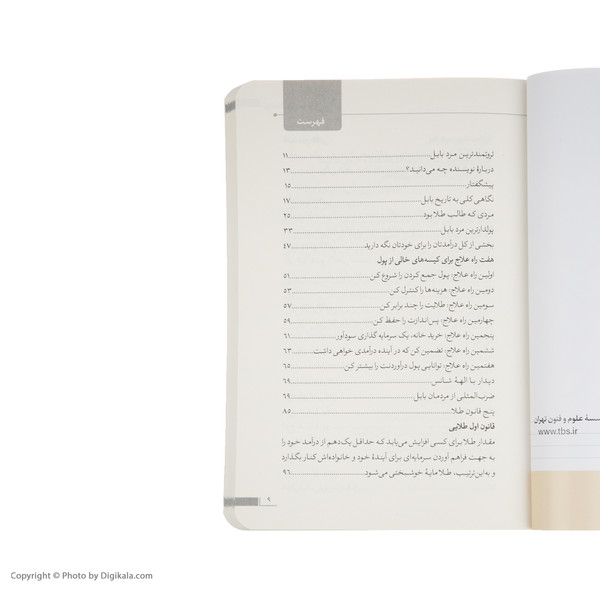 فهرست
ثروتمندترین مرد بابل ۱۱
دربارهٔ نویسنده چه می‌دانید؟ ۱۳
پیشگفتار ۱۵
نگاهی کلی به تاریخ بابل ۱۷
مردی که طالب طلا بود ۲۵
پولدارترین مرد بابل ۳۳
بخشی از کل درآمدتان را برای خودتان نگه دارید ۴۷
هفت راه علاج برای کیسه‌های خالی از پول
اولین راه علاج: پول جمع کردن را شروع کن ۵۱
دومین راه علاج: هزینه‌ها را کنترل کن ۵۳
سومین راه علاج: طلایت را چند برابر کن ۵۷
چهارمین راه علاج: پس‌اندازت را حفظ کن ۵۹
پنجمین راه علاج: خرید خانه، یک سرمایه گذاری سودآور ۶۱
ششمین راه علاج: تضمین کن که در آینده درآمدی خواهی داشت ۶۳
هفتمین راه علاج: توانایی پول درآوردنت را بیشتر کن ۶۵
دیدار با الههٔ شانس ۶۹
ضرب‌المثلی از مردمان بابل ۶۹
پنج قانون طلا ۸۵
قانون اول طلایی
مقدار طلا برای کسی افزایش می‌یابد که حداقل یک‌دهم از درآمد خود را
به جهت فراهم آوردن سرمایه‌ای برای آیندهٔ خود و خانواده‌اش کنار بگذارد
و به‌این‌ترتیب، طلا مایهٔ خوشبختی می‌شود ۹۶
۹
سسهٔ علوم و فنون تهران
www.tbs.ir
Copyright © Photo by Digikala.com